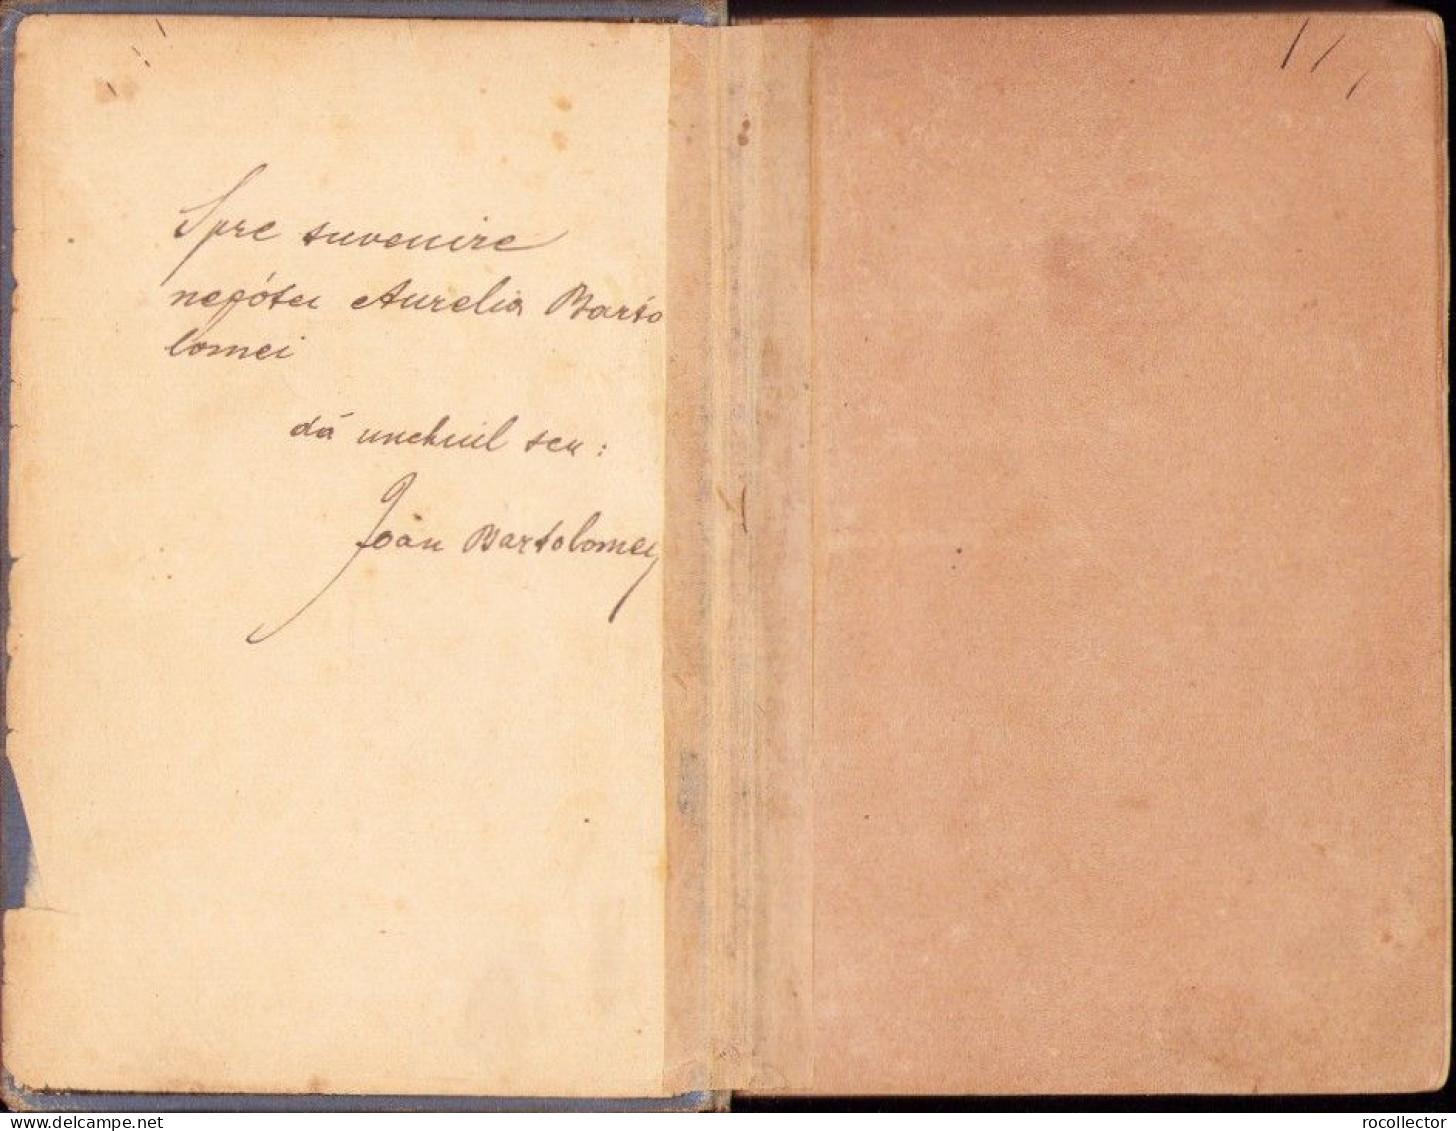 Spre suvenire
nepótei Aurelia Barto
lomei
dă unchiul seu:
Joan Bartolomei
delcampe.net
rocollector